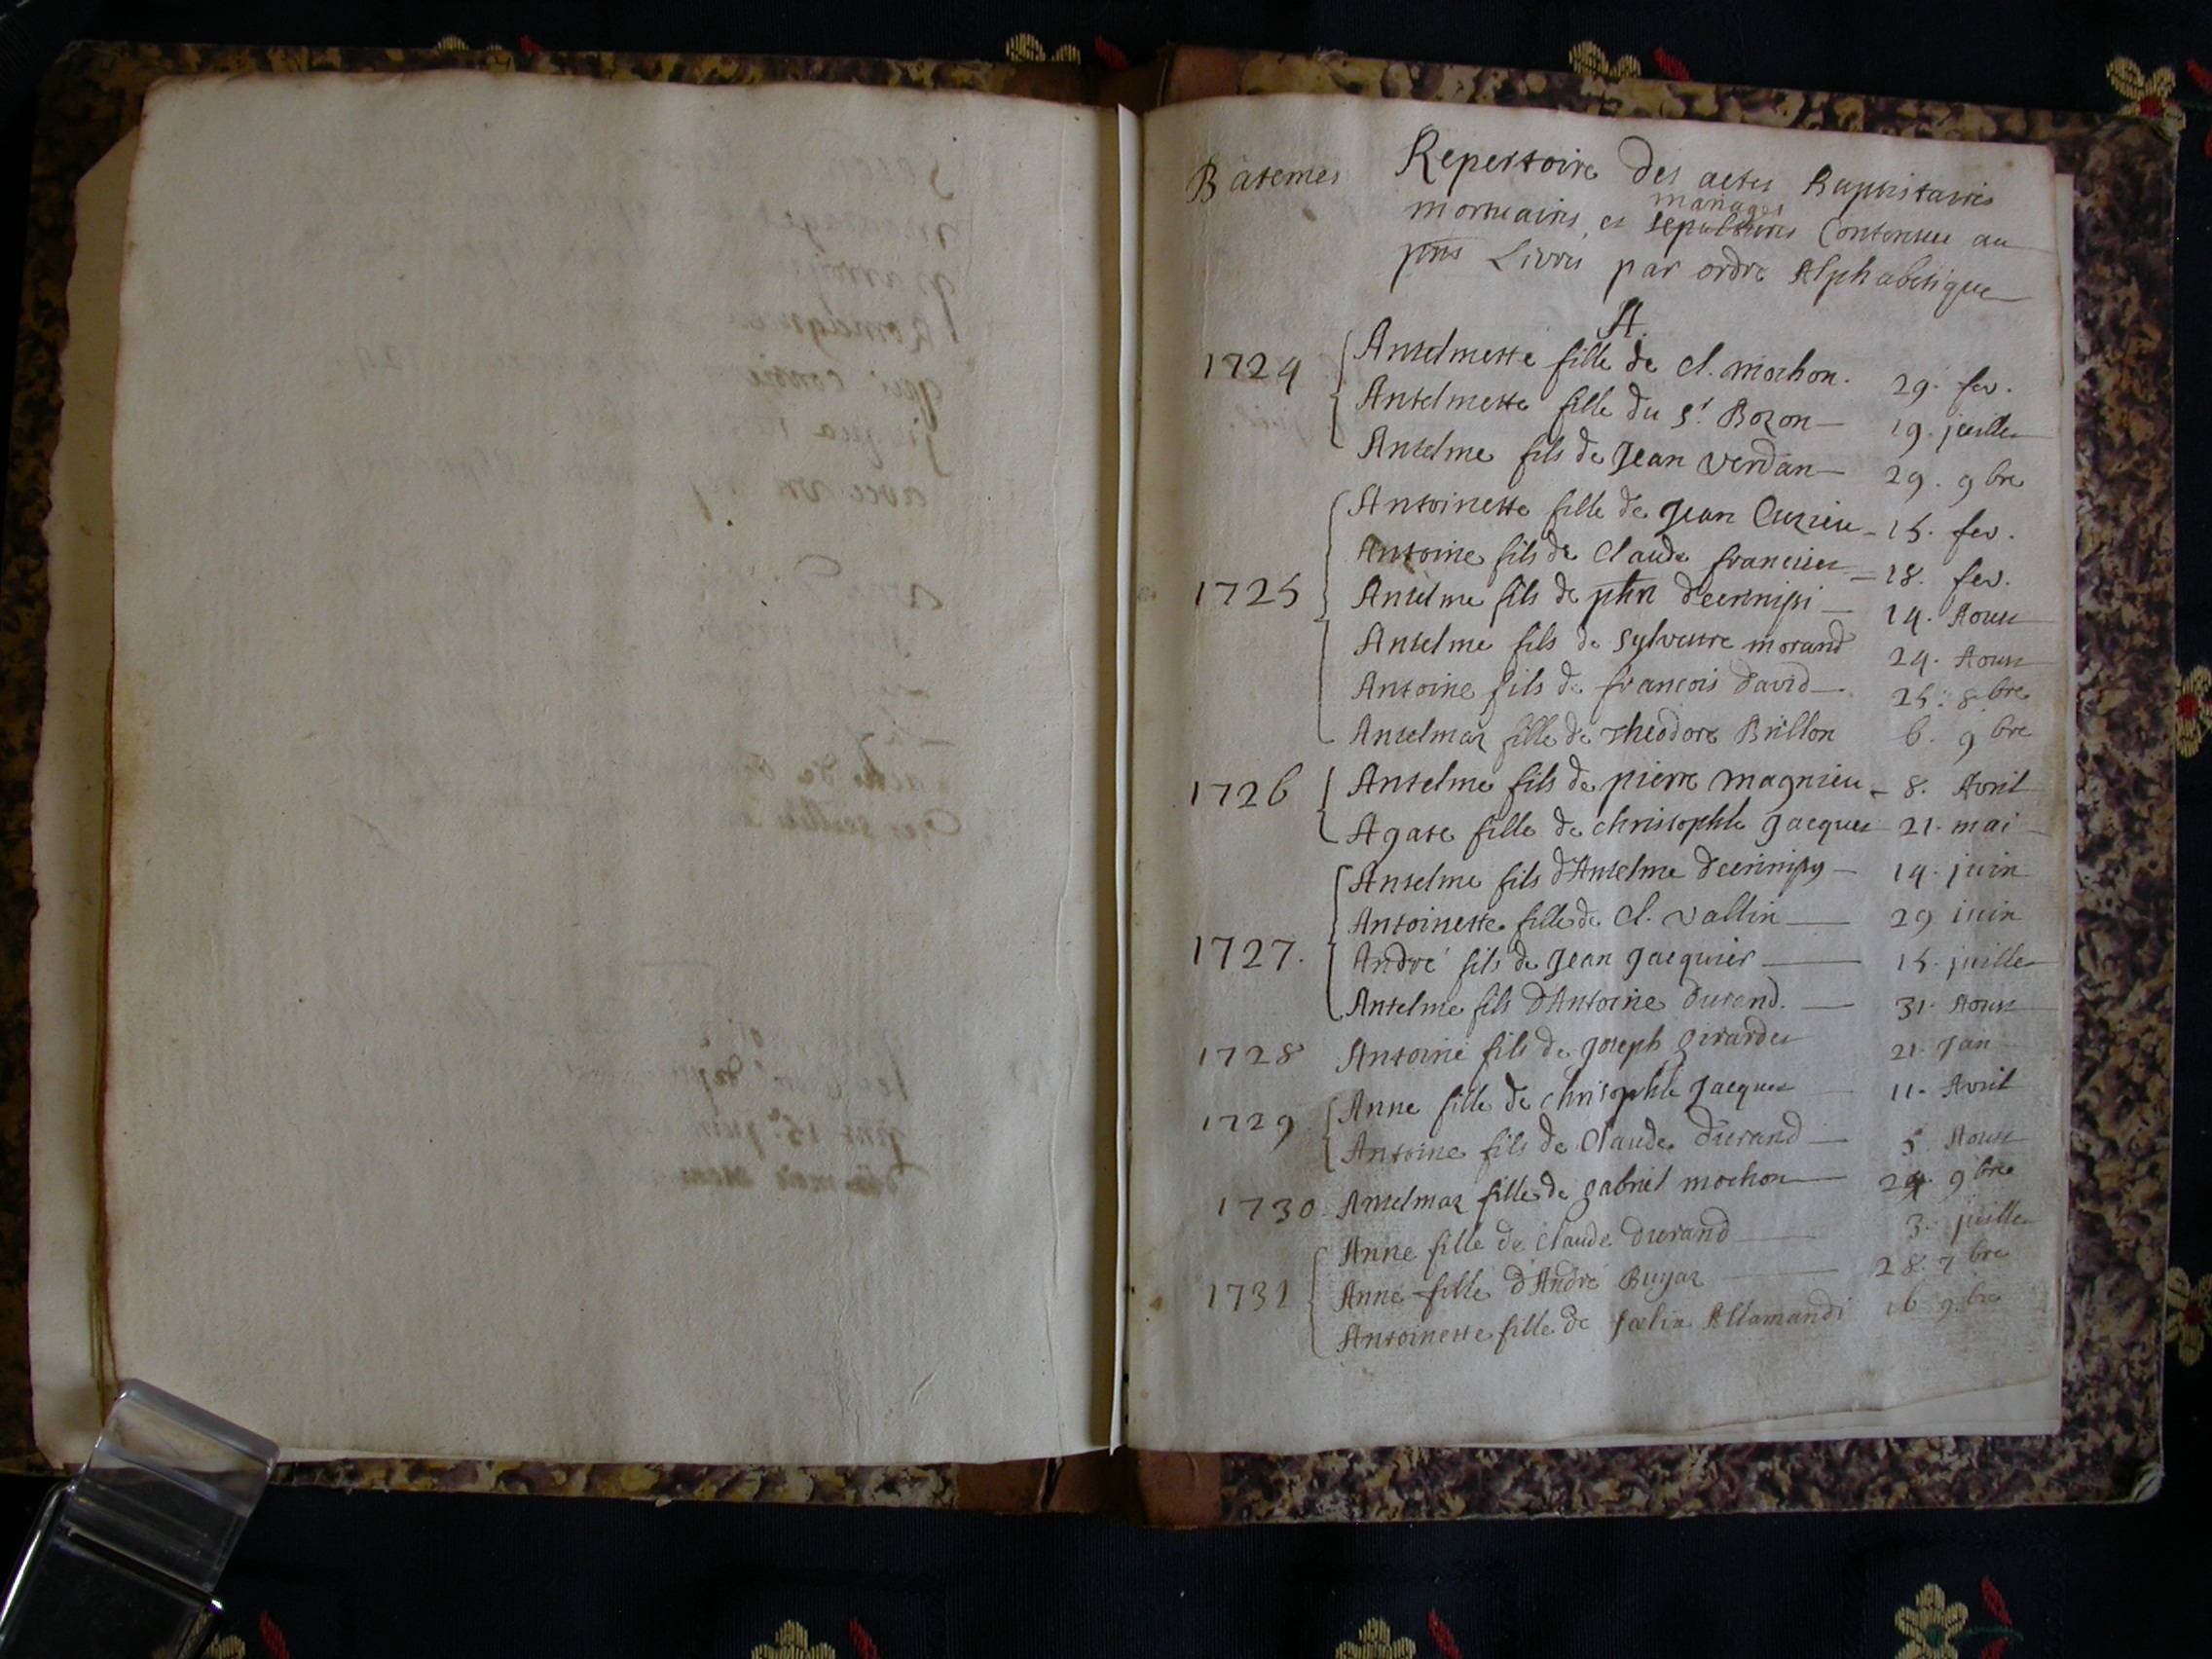 Bâtemes
Repertoire des actes Baptistaires
mortuaires, et sepultures mariages Contenues au
pnt Livre par ordre Alphabetique
A.
1724 Anselmette fille de Cl. Mochon. 29. fev.
Anselmette fille du Sr. Bozon 19. juillet
Anselme fils de Jean Verdan 29. 9bre
Antoinette fille de Jean Curieu 15. fev.
Antoine fils de Claude 18. fev.
1725 Anselme fils de phn 14. Aoust
Anselme fils de Sylvestre Morand 24. Aoust
Antoine fils de francois David 25. 8bre
Anselmaz fille de Theodore Brillon 6. 9bre
1726 Anselme fils de pierre Magnieu 8. Avril
Agate fille de christophle Jacques 21. mai
Anselme fils d'Anselme 14. juin
Antoinette fille de Cl. Vallin 29 juin
1727. André fils de Jean Jacquier 15. juillet
Antelme fils d'Antoine Durand. 31. Aoust
1728 Antoine fils de Joseph Girardet 21. Jan
1729 Anne fille de christophle Jacques 11. Avril
Antoine fils de Claude Durand 5 Aoust
1730 Anselmaz fille de gabriel Mochon 24. 9bre
Anne fille de Claude Durand 3. juillet
1731 Anne fille d'André Bugaz 28. 7bre
Antoinette fille de Fœlix Allamandi 16 9bre